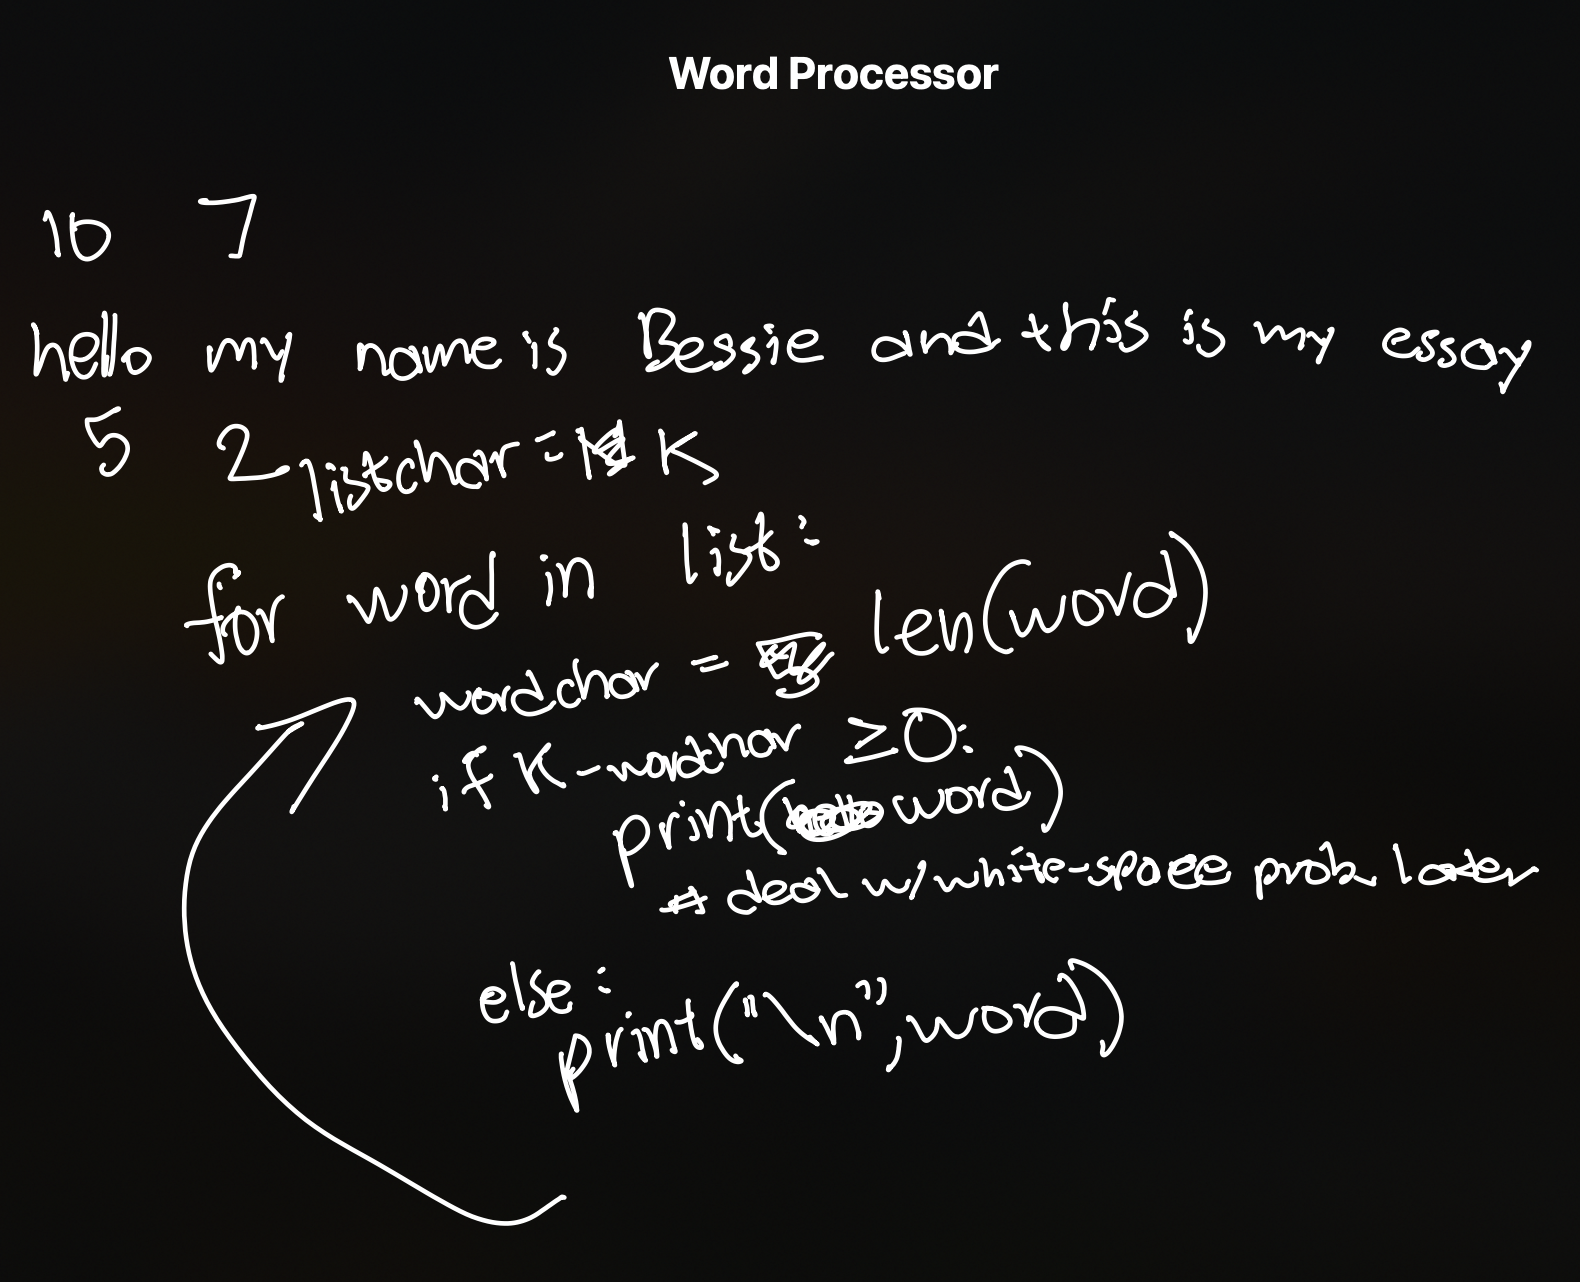 Word Processor
10 7
hello my name is Bessie and this is my essay
5 2 listchar = K
for word in list:
wordchar = len(word)
if K-wordchar ≥0:
print( word)
# deal w/ white-space prob later
else:
print("\n",word)